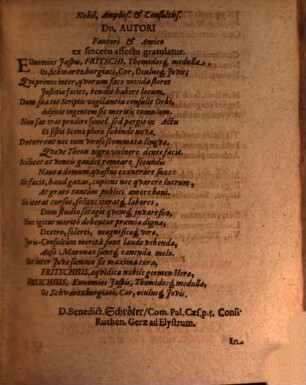 Nobil. Ampliss. & Consultiss.
Dn. AUTORI
Fautori & Amico
ex sincero affectu gratulatur.
Eunomies Jaspis, FRITSCHI, Themidosq; medulla,
Os Schwartzburgiaci, Cor, Oculusq; Jovis;
Qui primos inter, quorum face vivida floret
Justitia fautrix, tendit habere locum.
Dum sua tot Scriptis vigilantia consulit Orbi,
Adjicit ingentem sic meritis cumulum.
Non sat erat prodire semel. sed pergit in Actu
Et sistit Scena plura subinde nova.
Deterrent nec eum Virosi stommata lingvæ,
Quove Theon nigra vulnere dente facit.
Scilicet ut ventis gaudet remeare secundis
Nauta domum, quæstus exonerare suos:
Sic facit, haud gazas, cupiens nec quærere lucrum,
At grato tantum publici amore boni.
Sic iterat cursus, soliti iteratq; labores,
Dum studio satagit quemq; juvare suo,
Huic igitur meritò debentur præmia digna,
Dextro, solerti, magnificoq; viro.
Juris-Consultûm meritâ sunt laude vehenda,
Ausa Maronæo sunt q; canenda melo.
Sit inter Jove summo sic maxima cura,
FRITSCHIUS, æquidica nobile germen Hera,
FRITSCHIUS, Eunomies Jaspis, Themidosq; medulla,
Os Schwartzburgiaci, Cor, oculusq; Jovis.
D. Benedict. Schröter/ Com. Pal. Cæs. p. t. Cons.
Ruthen. Geræ ad Elystrum.
En